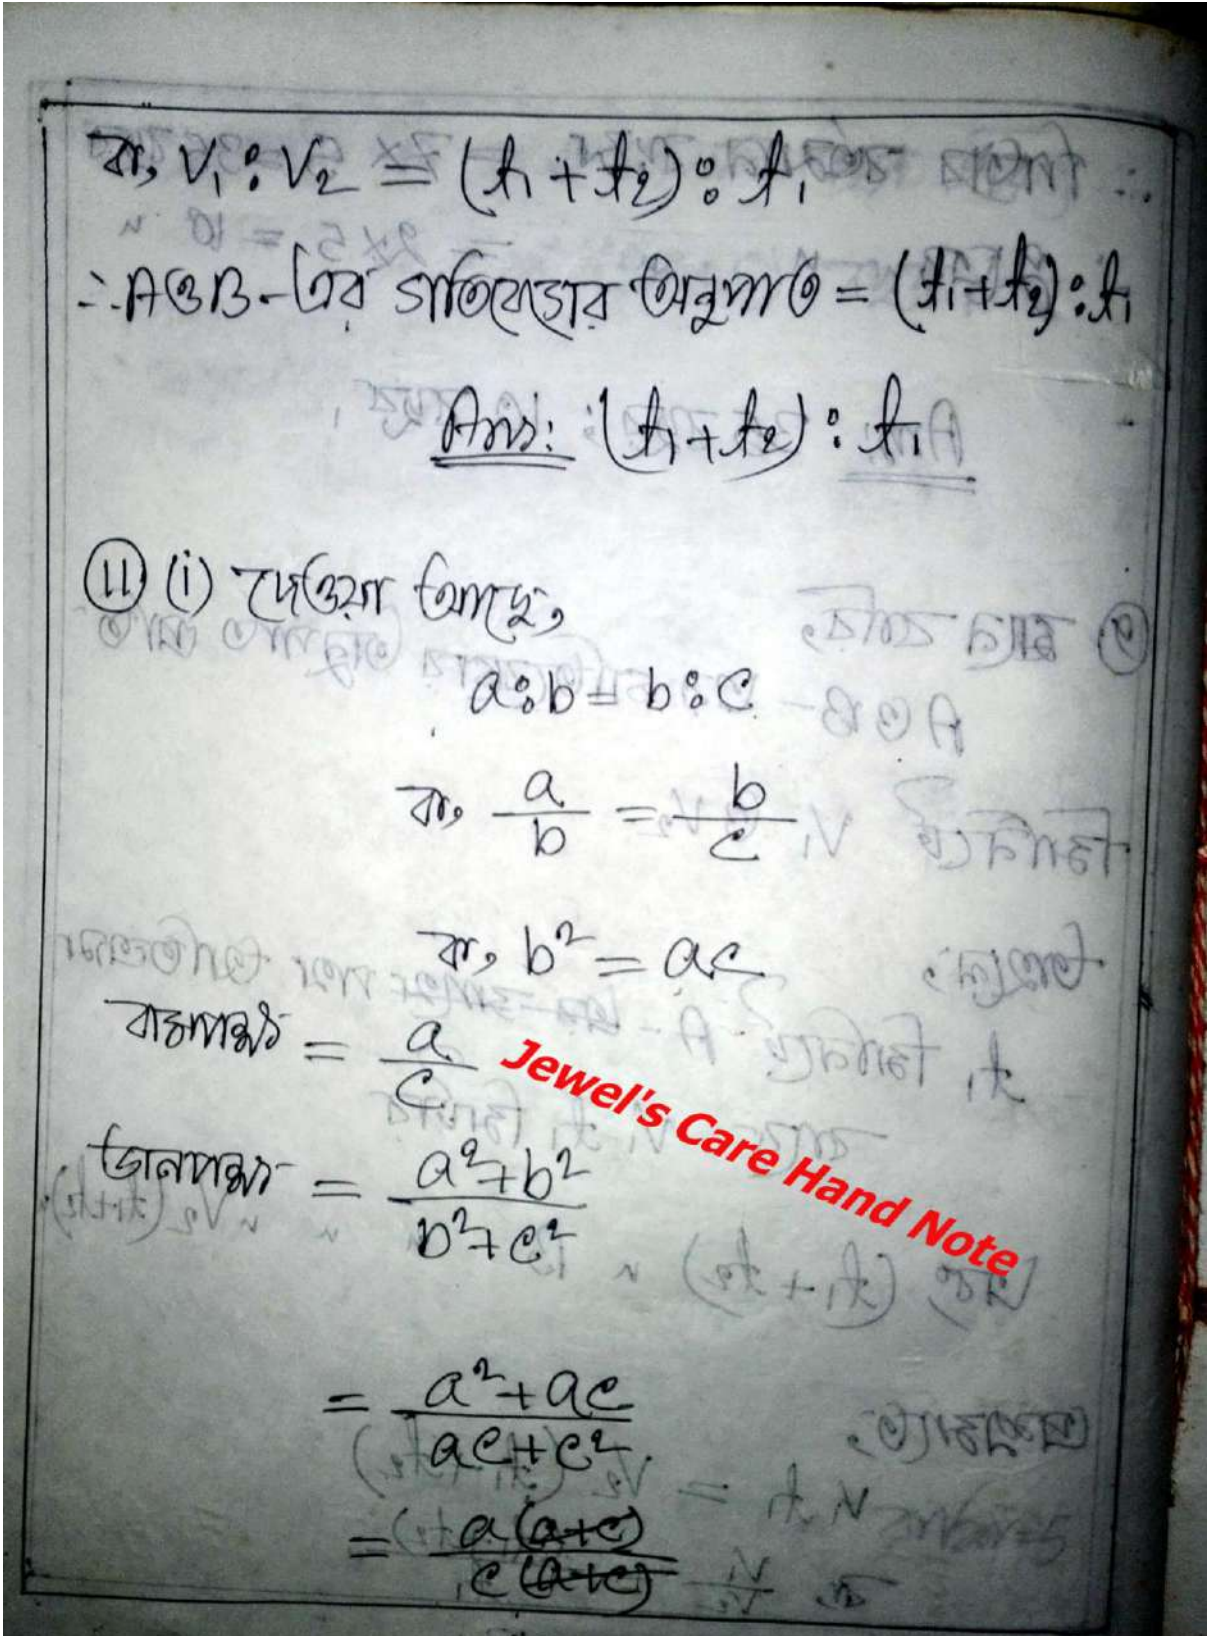 বা, V₁ : V₂ = (t₁ + t₂) : t₁
∴ A ও B - এর গতিবেগের অনুপাত = (t₁+t₂) : t₁
Ans: (t₁+t₂) : t₁
11 (i) দেওয়া আছে,
a : b = b : c
বা, a/b = b/c
বা, b² = ac
বামপক্ষ = a/c
ডানপক্ষ = (a²+b²)/(b²+c²)
= (a²+ac)/(ac+c²)
= a(a+c)/c(a+c)
Jewel's Care Hand Note